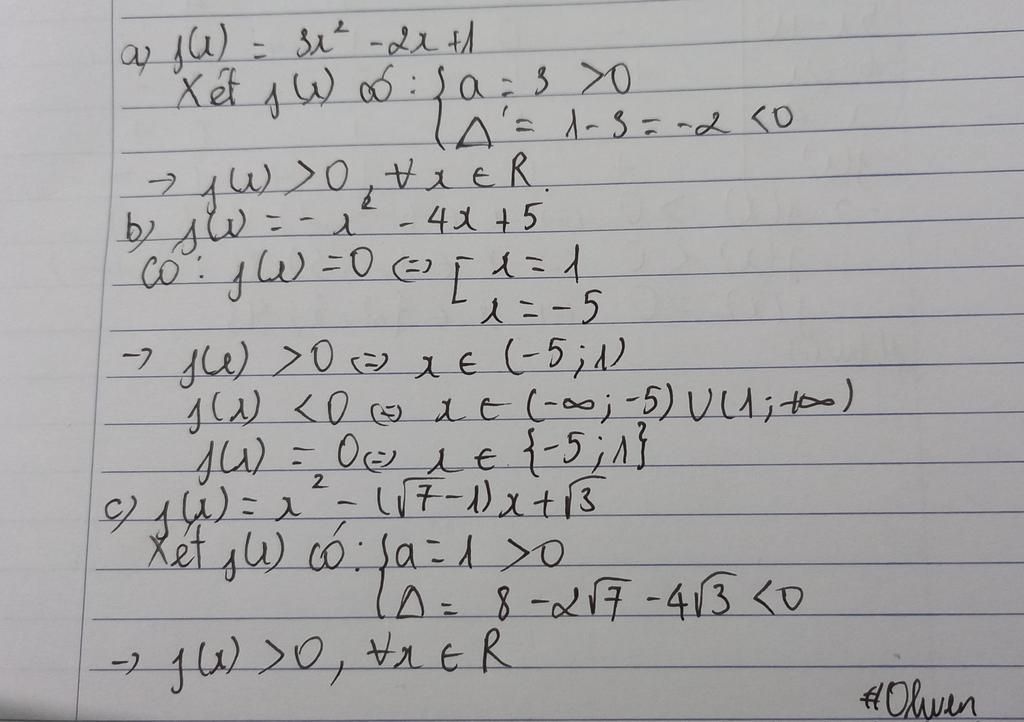 a) f(x) = 3x² - 2x + 1
Xét f(x) có : { a = 3 > 0
Δ' = 1 - 3 = -2 < 0
→ f(x) > 0, ∀ x ∈ R.
b) f(x) = - x² - 4x + 5
Có : f(x) = 0 ⇔ [ x = 1
x = - 5
→ f(x) > 0 ⇔ x ∈ (-5 ; 1)
f(x) < 0 ⇔ x ∈ (-∞ ; -5) ∪ (1 ; +∞)
f(x) = 0 ⇔ x ∈ {-5 ; 1}
c) f(x) = x² - (√7 - 1)x + √3
Xét f(x) có : { a = 1 > 0
Δ = 8 - 2√7 - 4√3 < 0
→ f(x) > 0, ∀x ∈ R